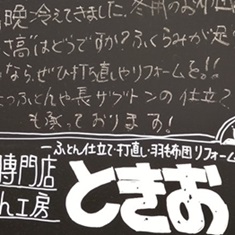 晩冷えてきました。冬用のお布
さ"高"はどうですか?ふくらみが足
なら、ぜひ打ち直しやリフォームを!!
っふとんや長ザブトンの仕立て
も承っております!
―ふとん仕立て・打直し・羽毛布団リフォーム
専門店
ん工房
ときお